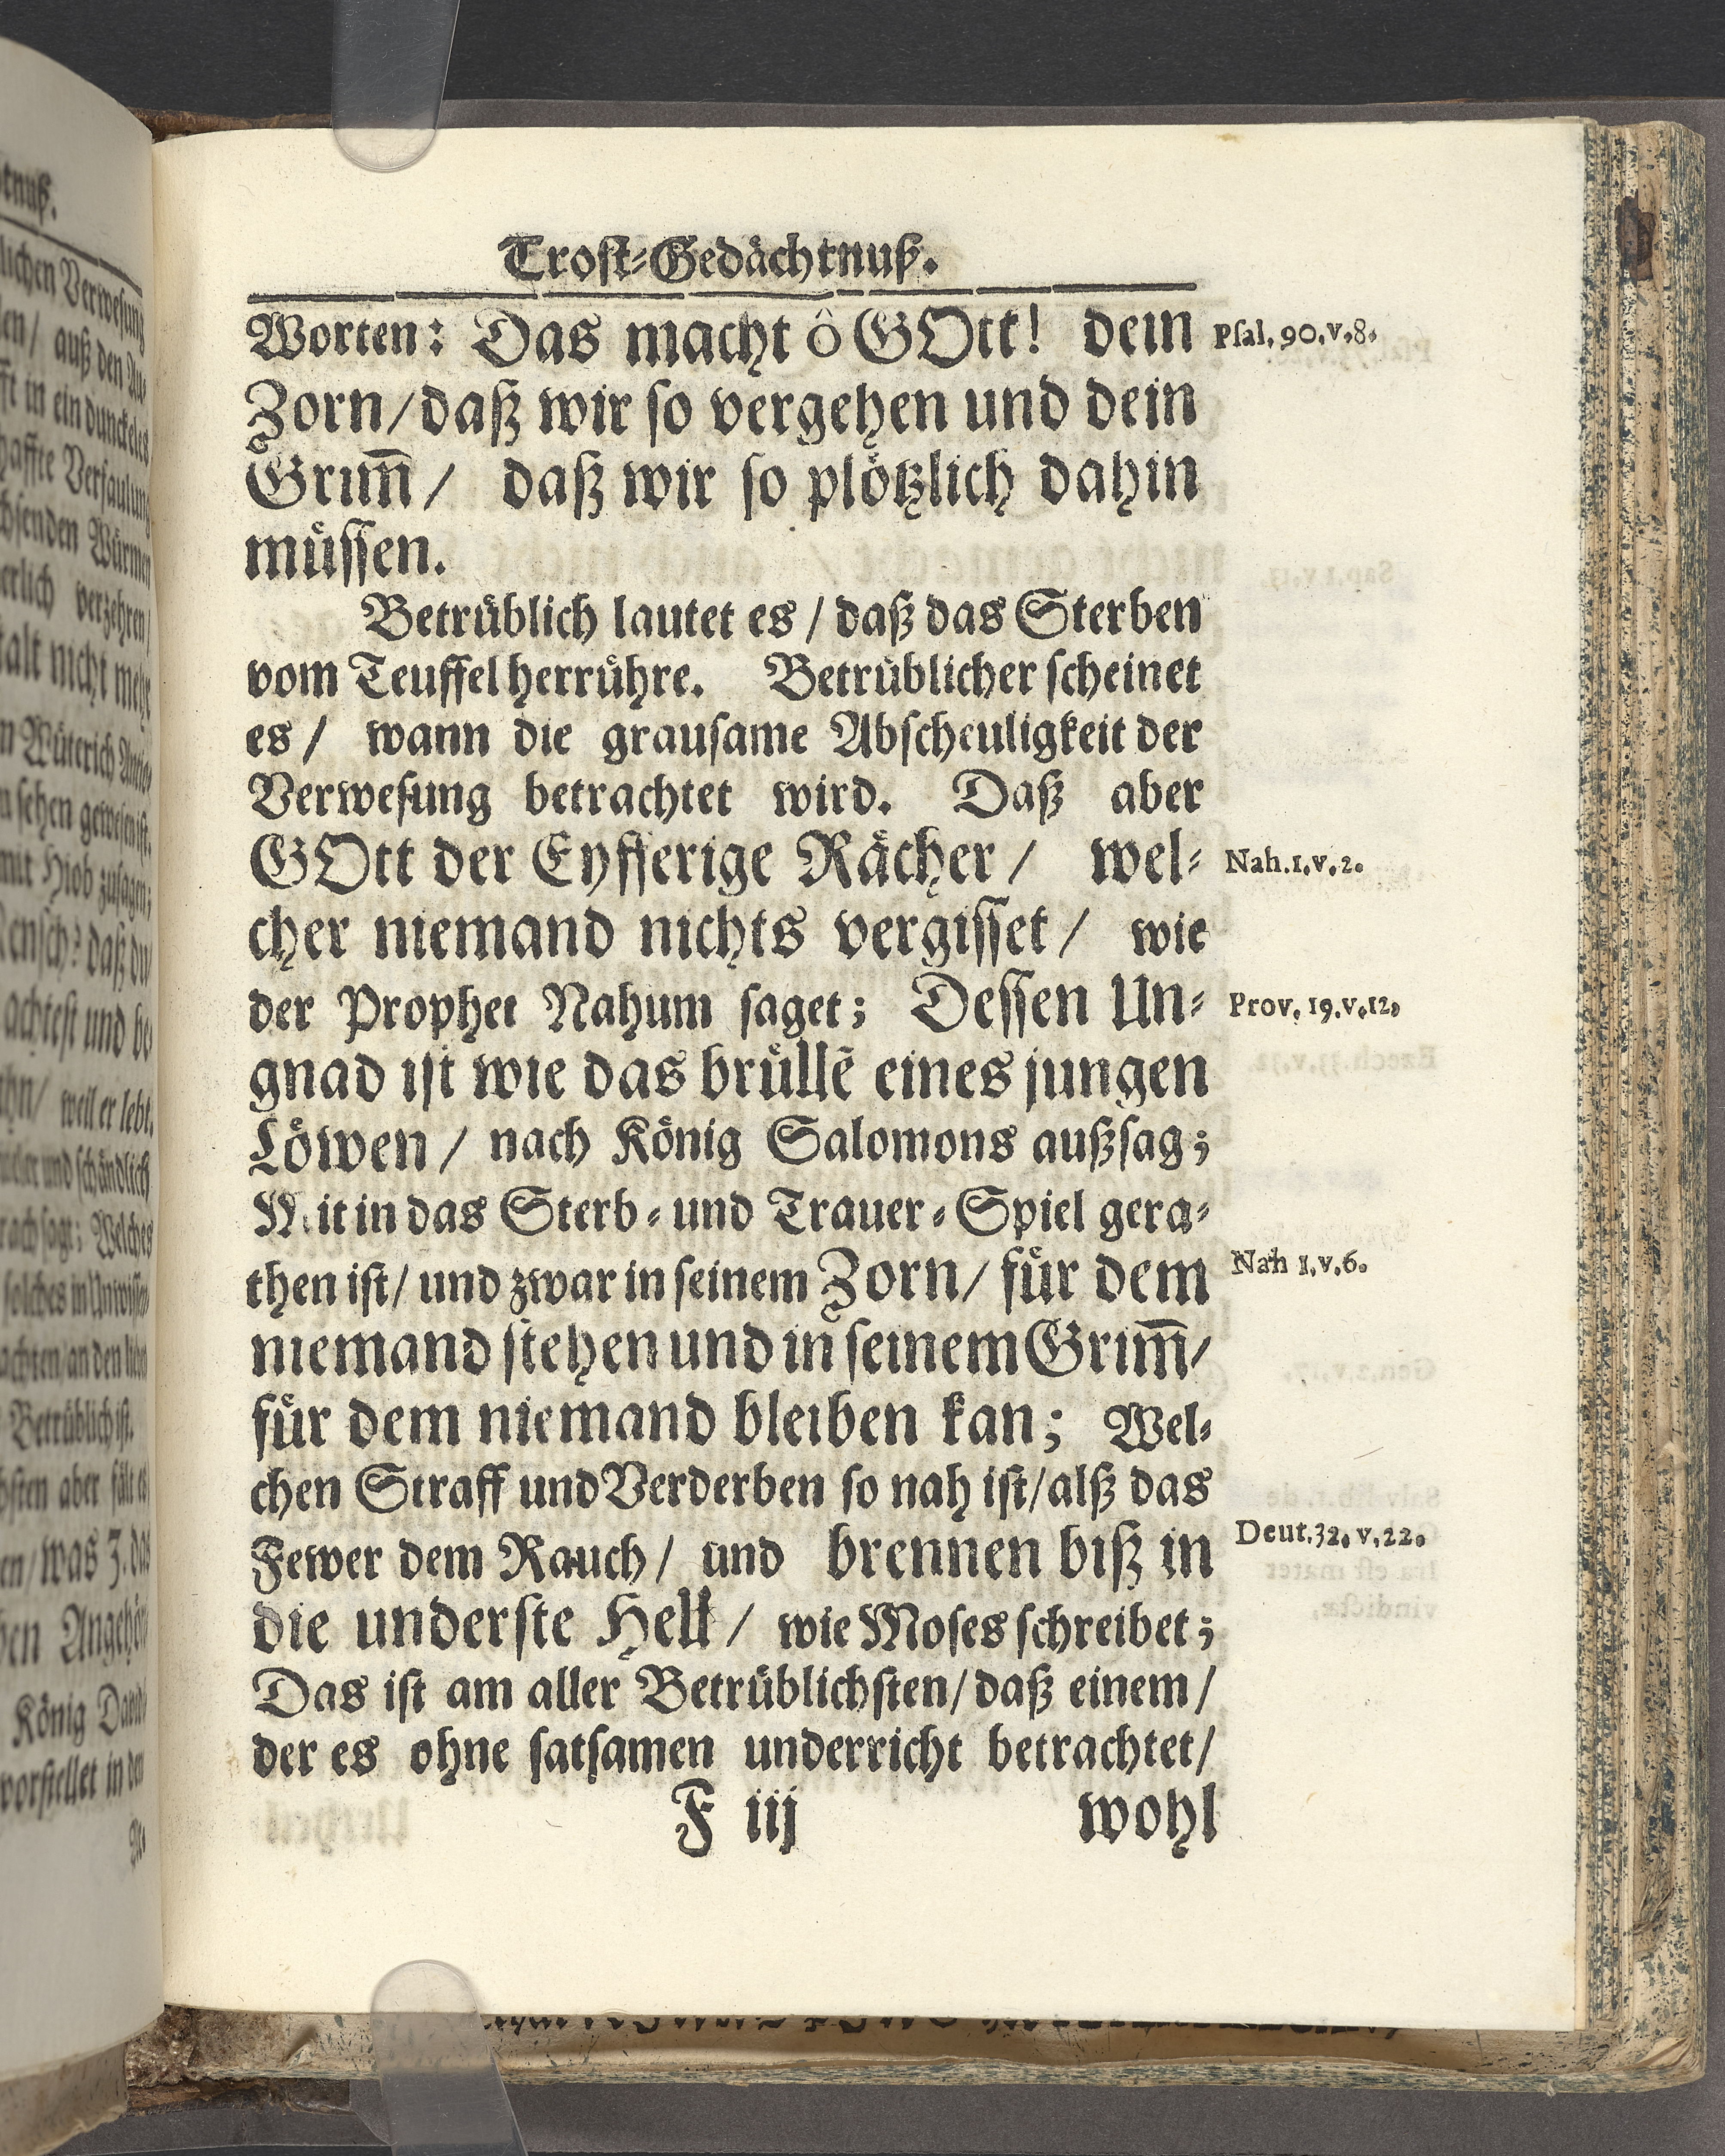 Trost-Gedächtnuß.
Worten: Das macht ô GOtt! dein
Psal. 90. v. 8.
Zorn/ daß wir so vergehen und dein
Grim̄/ daß wir so plötzlich dahin
müssen.
Betrüblich lautet es/ daß das Sterben
vom Teuffel herrühre. Betrüblicher scheinet
es/ wann die grausame Abscheuligkeit der
Verwesung betrachtet wird. Daß aber
GOtt der Eyfferige Rächer/ wel-
Nah. 1. v. 2.
cher niemand nichts vergisset/ wie
der Prophet Nahum saget; Dessen Un-
Prov. 19. v. 12.
gnad ist wie das brüllē eines jungen
Löwen/ nach König Salomons außsag;
Mit in das Sterb- und Trauer-Spiel gera-
then ist/ und zwar in seinem Zorn/ für dem
Nah 1. v. 6.
niemand stehen und in seinem Grim̄/
für dem niemand bleiben kan; Wel-
chen Straff und Verderben so nah ist/ alß das
Fewer dem Rauch/ und brennen biß in
Deut. 32. v. 22.
die underste Hell/ wie Moses schreibet;
Das ist am aller Betrüblichsten/ daß einem/
der es ohne satsamen underricht betrachtet/
F iij wohl